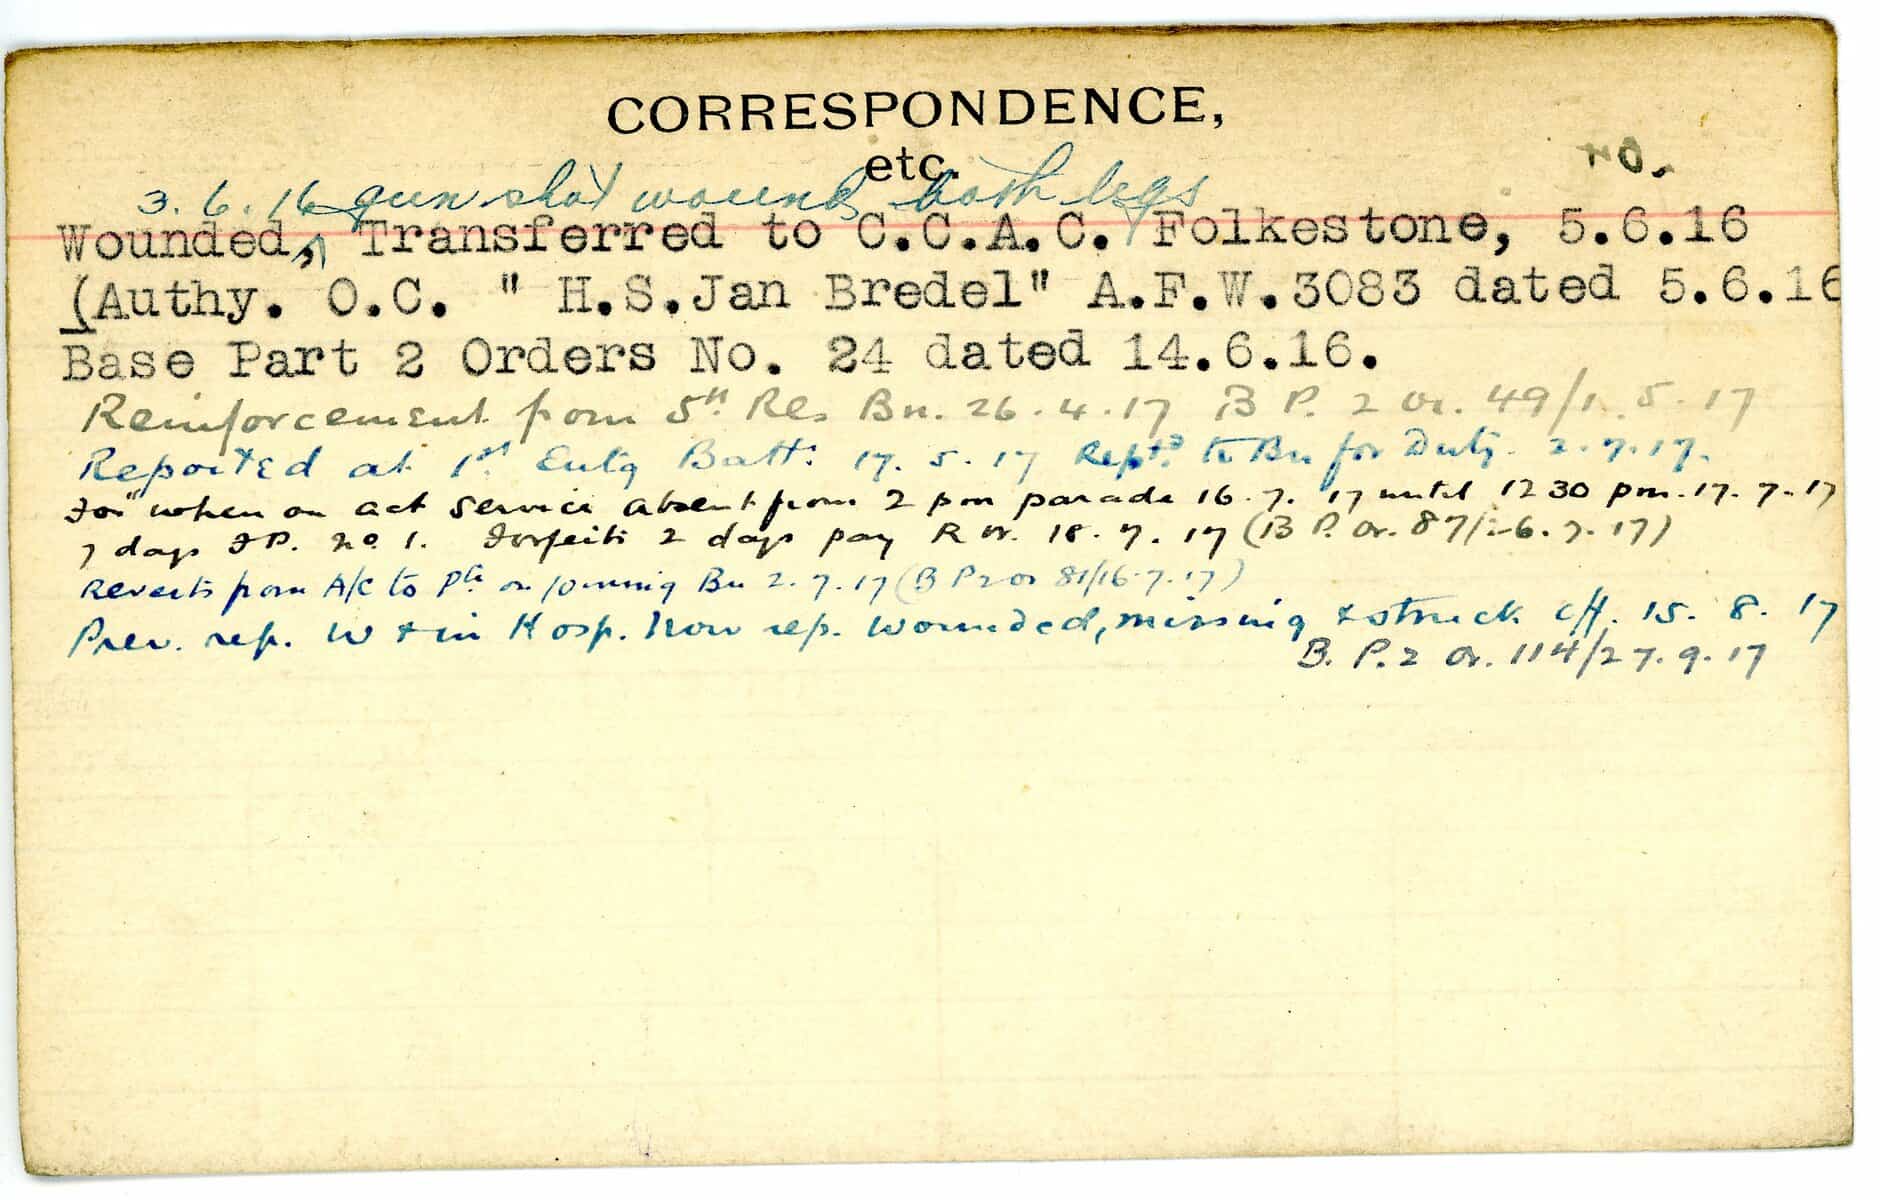 CORRESPONDENCE,
etc.
3.6.16 gun shot wounds both legs
Wounded, Transferred to C.C.A.C. Folkestone, 5.6.16
(Authy. O.C. " H.S.Jan Bredel" A.F.W.3083 dated 5.6.16
Base Part 2 Orders No. 24 dated 14.6.16.
Reinforcement from 5th Res Bn. 26.4.17 B P. 2 Or. 49/1.5.17
Reported at 1st Entg Batt: 17.5.17 Reptd to Bn for Duty 2.7.17.
For "when on act service absent from 2 pm parade 16.7.17 until 12 30 pm. 17.7.17
7 days F P. No 1. Forfeits 2 days pay R Or. 18.7.17 (B P. Or. 87/ 6.7.17)
Reverts from A/C to Pte on joining Bn 2.7.17 (B P 2 Or 81/16.7.17)
Prev. rep. W & in Hosp. Now rep. Wounded, missing & struck off. 15.8.17
B. P. 2 Or. 114/27.9.17